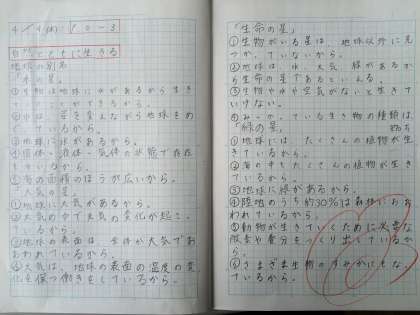 4/9(木) P0-3
自然とともに生きる
地球の別名
「水の星」
①生物は地球に水があるから生き
ていくことができるから。
②水は、姿を変えながら地球をめ
ぐっているから。
③地球に水があるから。
④固体・液体・気体の状態で存在
しているから。
⑤海の面積のほうが広いから。
「大気の星」
①地球に大気があるから。
②大気の中で天気の変化が起こっ
ているから。
③地球の表面は、全体が大気でお
おわれているから。
④大気は、地球の表面の温度の変
化を保つ働きをしているから。
「生命の星」
①生物がいる星は、地球以外に見
つかっていないから。
②地球は、水、大気、緑があるか
ら生命の星であるといえる。
③生物や水や空気がないと生きて
いけない。
④見つかっている生き物の種類は
「緑の星」
①地球には、たくさんの植物が生
きているから。
②海の中もたくさんの植物が生き
ているから。
③地球に緑があるから。
④陸地のうち約30%は森林におお
われているから。
⑤動物が生きていくために必要な
酸素や養分をつくり出しているか
ら。
⑥さまざま生物のすみかにもなっ
ているから。